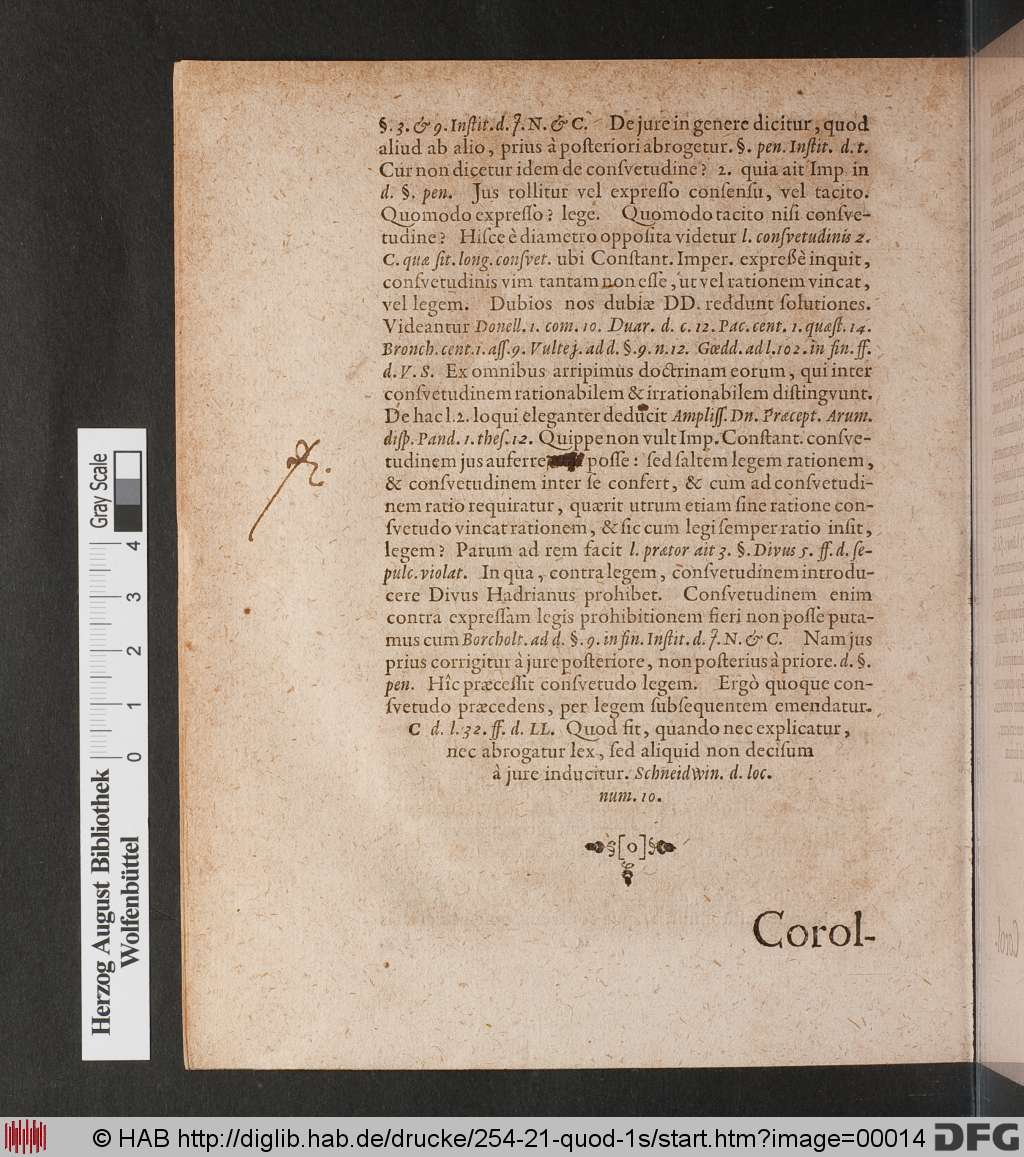 §. 3. & 9. Inſtit. d. J. N. & C. De jure in genere dicitur, quod
aliud ab alio, prius à poſteriori abrogetur. §. pen. Inſtit. d. t.
Cur non dicetur idem de conſvetudine? 2. quia ait Imp. in
d. §. pen. Jus tollitur vel expreſſo conſenſu, vel tacito.
Quomodo expreſſo? lege. Quomodo tacito niſi conſve-
tudine? Hiſce è diametro oppoſita videtur l. conſvetudinis 2.
C. quæ ſit. long. conſvet. ubi Conſtant. Imper. expreßè inquit,
conſvetudinis vim tantam non eſſe, ut vel rationem vincat,
vel legem. Dubios nos dubiæ DD. reddunt ſolutiones.
Videantur Donell. 1. com. 10. Duar. d. c. 12. Pac. cent. 1. quæſt. 14.
Bronch. cent. 1. aſſ. 9. Vultej. ad d. §. 9. n. 12. Gœdd. ad l. 102. in fin. ff.
d. V. S. Ex omnibus arripimus doctrinam eorum, qui inter
conſvetudinem rationabilem & irrationabilem diſtingvunt.
De hac l. 2. loqui eleganter deducit Ampliſſ. Dn. Præcept. Arum.
diſp. Pand. 1. theſ. 12. Quippe non vult Imp. Conſtant. conſve-
tudinem jus auferre poſſe: ſed ſaltem legem rationem,
& conſvetudinem inter ſe confert, & cum ad conſvetudi-
nem ratio requiratur, quærit utrum etiam ſine ratione con-
ſvetudo vincat rationem, & ſic cum legi ſemper ratio inſit,
legem? Parum ad rem facit l. prætor ait 3. §. Divus 5. ff. d. ſe-
pulc. violat. In qua, contra legem, conſvetudinem introdu-
cere Divus Hadrianus prohibet. Conſvetudinem enim
contra expreſſam legis prohibitionem fieri non poſſe puta-
mus cum Borcholt. ad d. §. 9. in fin. Inſtit. d. J. N. & C. Nam jus
prius corrigitur à jure poſteriore, non poſterius à priore. d. §.
pen. Hîc præceſſit conſvetudo legem. Ergò quoque con-
ſvetudo præcedens, per legem ſubſequentem emendatur.
C d. l. 32. ff. d. LL. Quod fit, quando nec explicatur,
nec abrogatur lex, ſed aliquid non deciſum
à jure inducitur. Schneidwin. d. loc.
num. 10.
§[o]§
Corol-
Gray Scale
0 1 2 3 4
Herzog August Bibliothek
Wolfenbüttel
© HAB http://diglib.hab.de/drucke/254-21-quod-1s/start.htm?image=00014
DFG